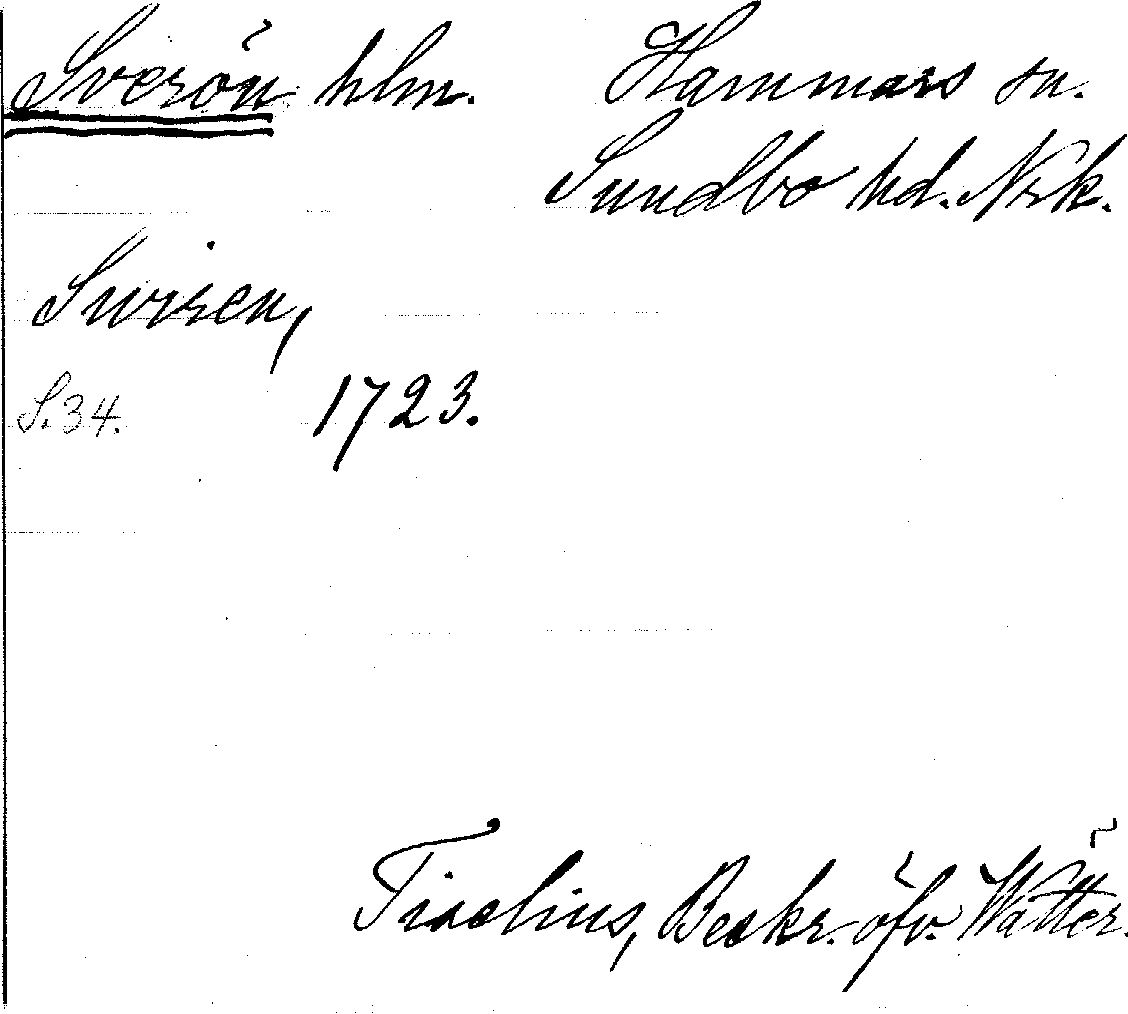 Sverön hlm. Hammars sn.
Sundbo hd. Nrk.
Swiren,
S. 34. 1723.
Tiselius, Beskr. öfv. Wätter.